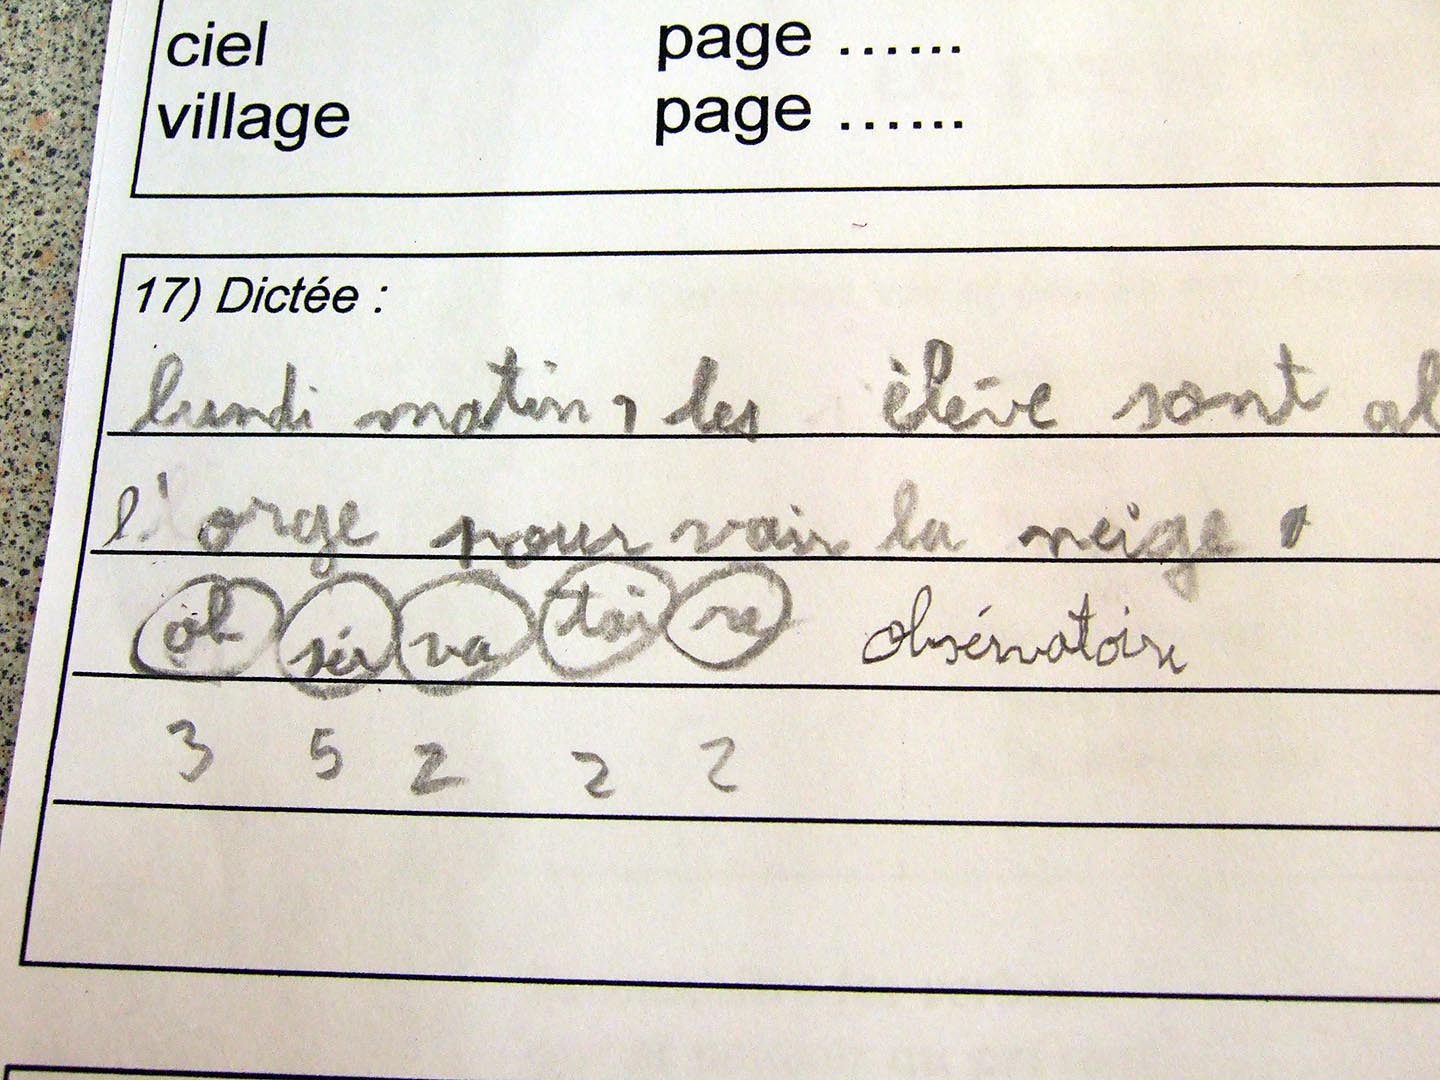 ciel page ......
village page ......
17) Dictée :
lundi matin, les élève sont al
l'orge pour voir la neige.
ob sér va toi re obsérvatoire
3 5 2 2 2